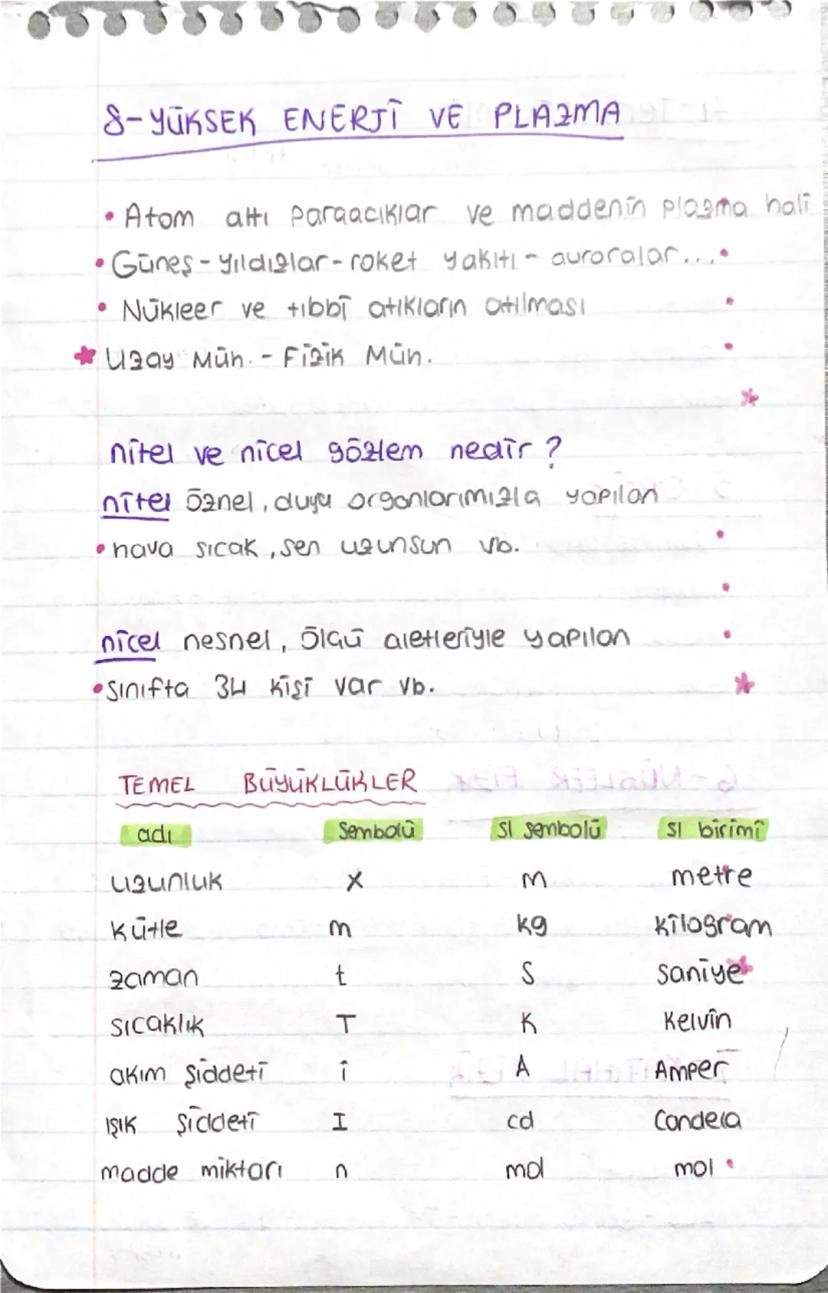 8-YÜKSEK ENERJİ VE PLAZMA
• Atom altı paraacıklar ve maddenin plazma hali
• Güneş - yıldızlar - roket yakıtı - auroralar...
• Nükleer ve tıbbi atıkların atılması
* Uzay Müh. - Fizik Müh.
nitel ve nicel gözlem nedir?
nitel öznel, duyu organlarımızla yapılan
• hava sıcak, sen uzunsun vb.
nicel nesnel, ölçü aletleriyle yapılan
• sınıfta 34 kişi var vb.
TEMEL BÜYÜKLÜKLER
adı sembolü SI sembolü SI birimi
uzunluk x m metre
kütle m kg kilogram
zaman t s saniye
sıcaklık T K Kelvin
akım şiddeti i A Amper
ışık şiddeti I cd Candela
madde miktarı n mol mol